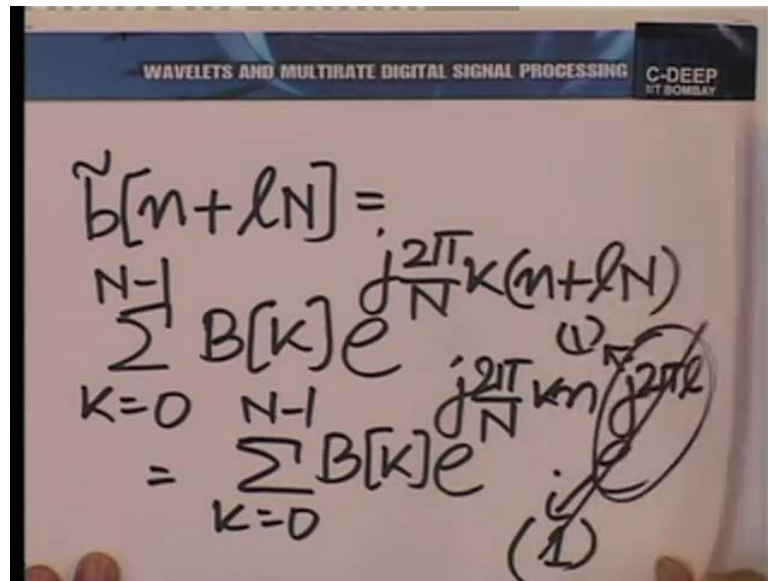 WAVELETS AND MULTIRATE DIGITAL SIGNAL PROCESSING
C-DEEP
IIT BOMBAY
b̃[n+lN] =
N-1
∑ B[k] e^{j 2π/N k(n+lN)}
k=0
(1)
N-1
= ∑ B[k] e^{j 2π/N kn} e^{j2πl}
k=0
(1)